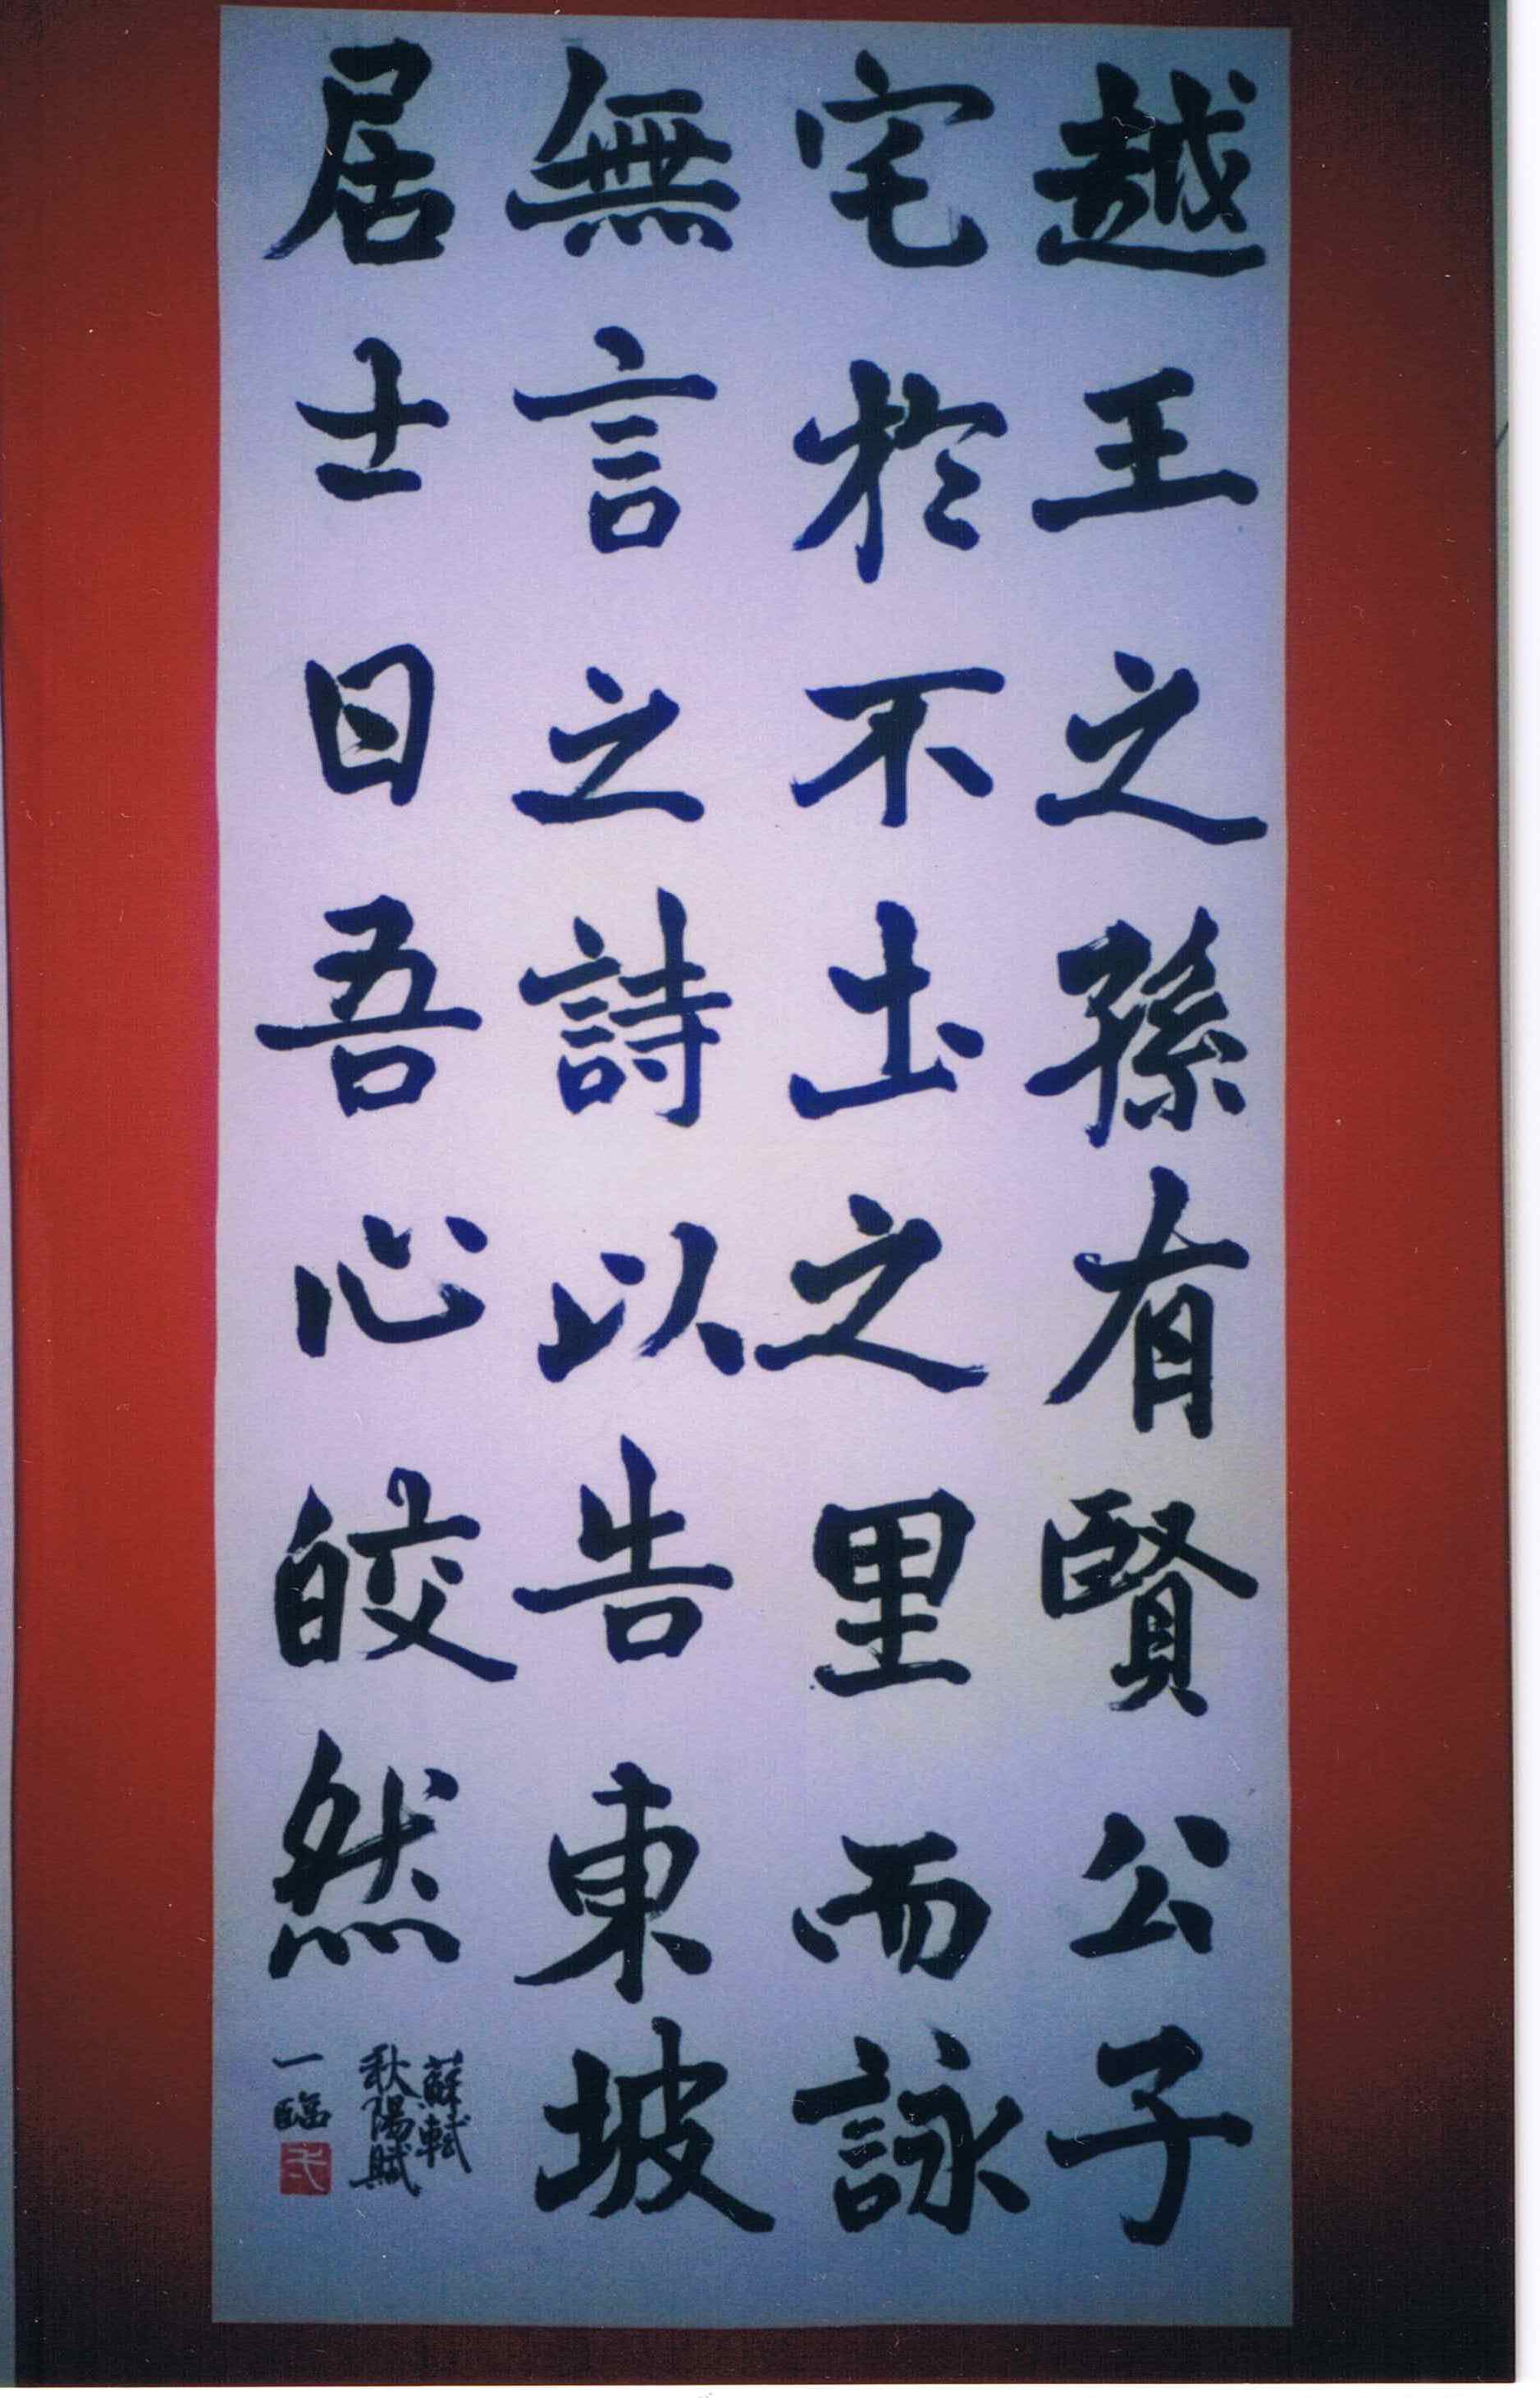 越王之孫有賢公子
宅於不土之里而詠
無言之詩以告東坡
居士曰吾心皎然
蘇軾
秋陽賦
一臨